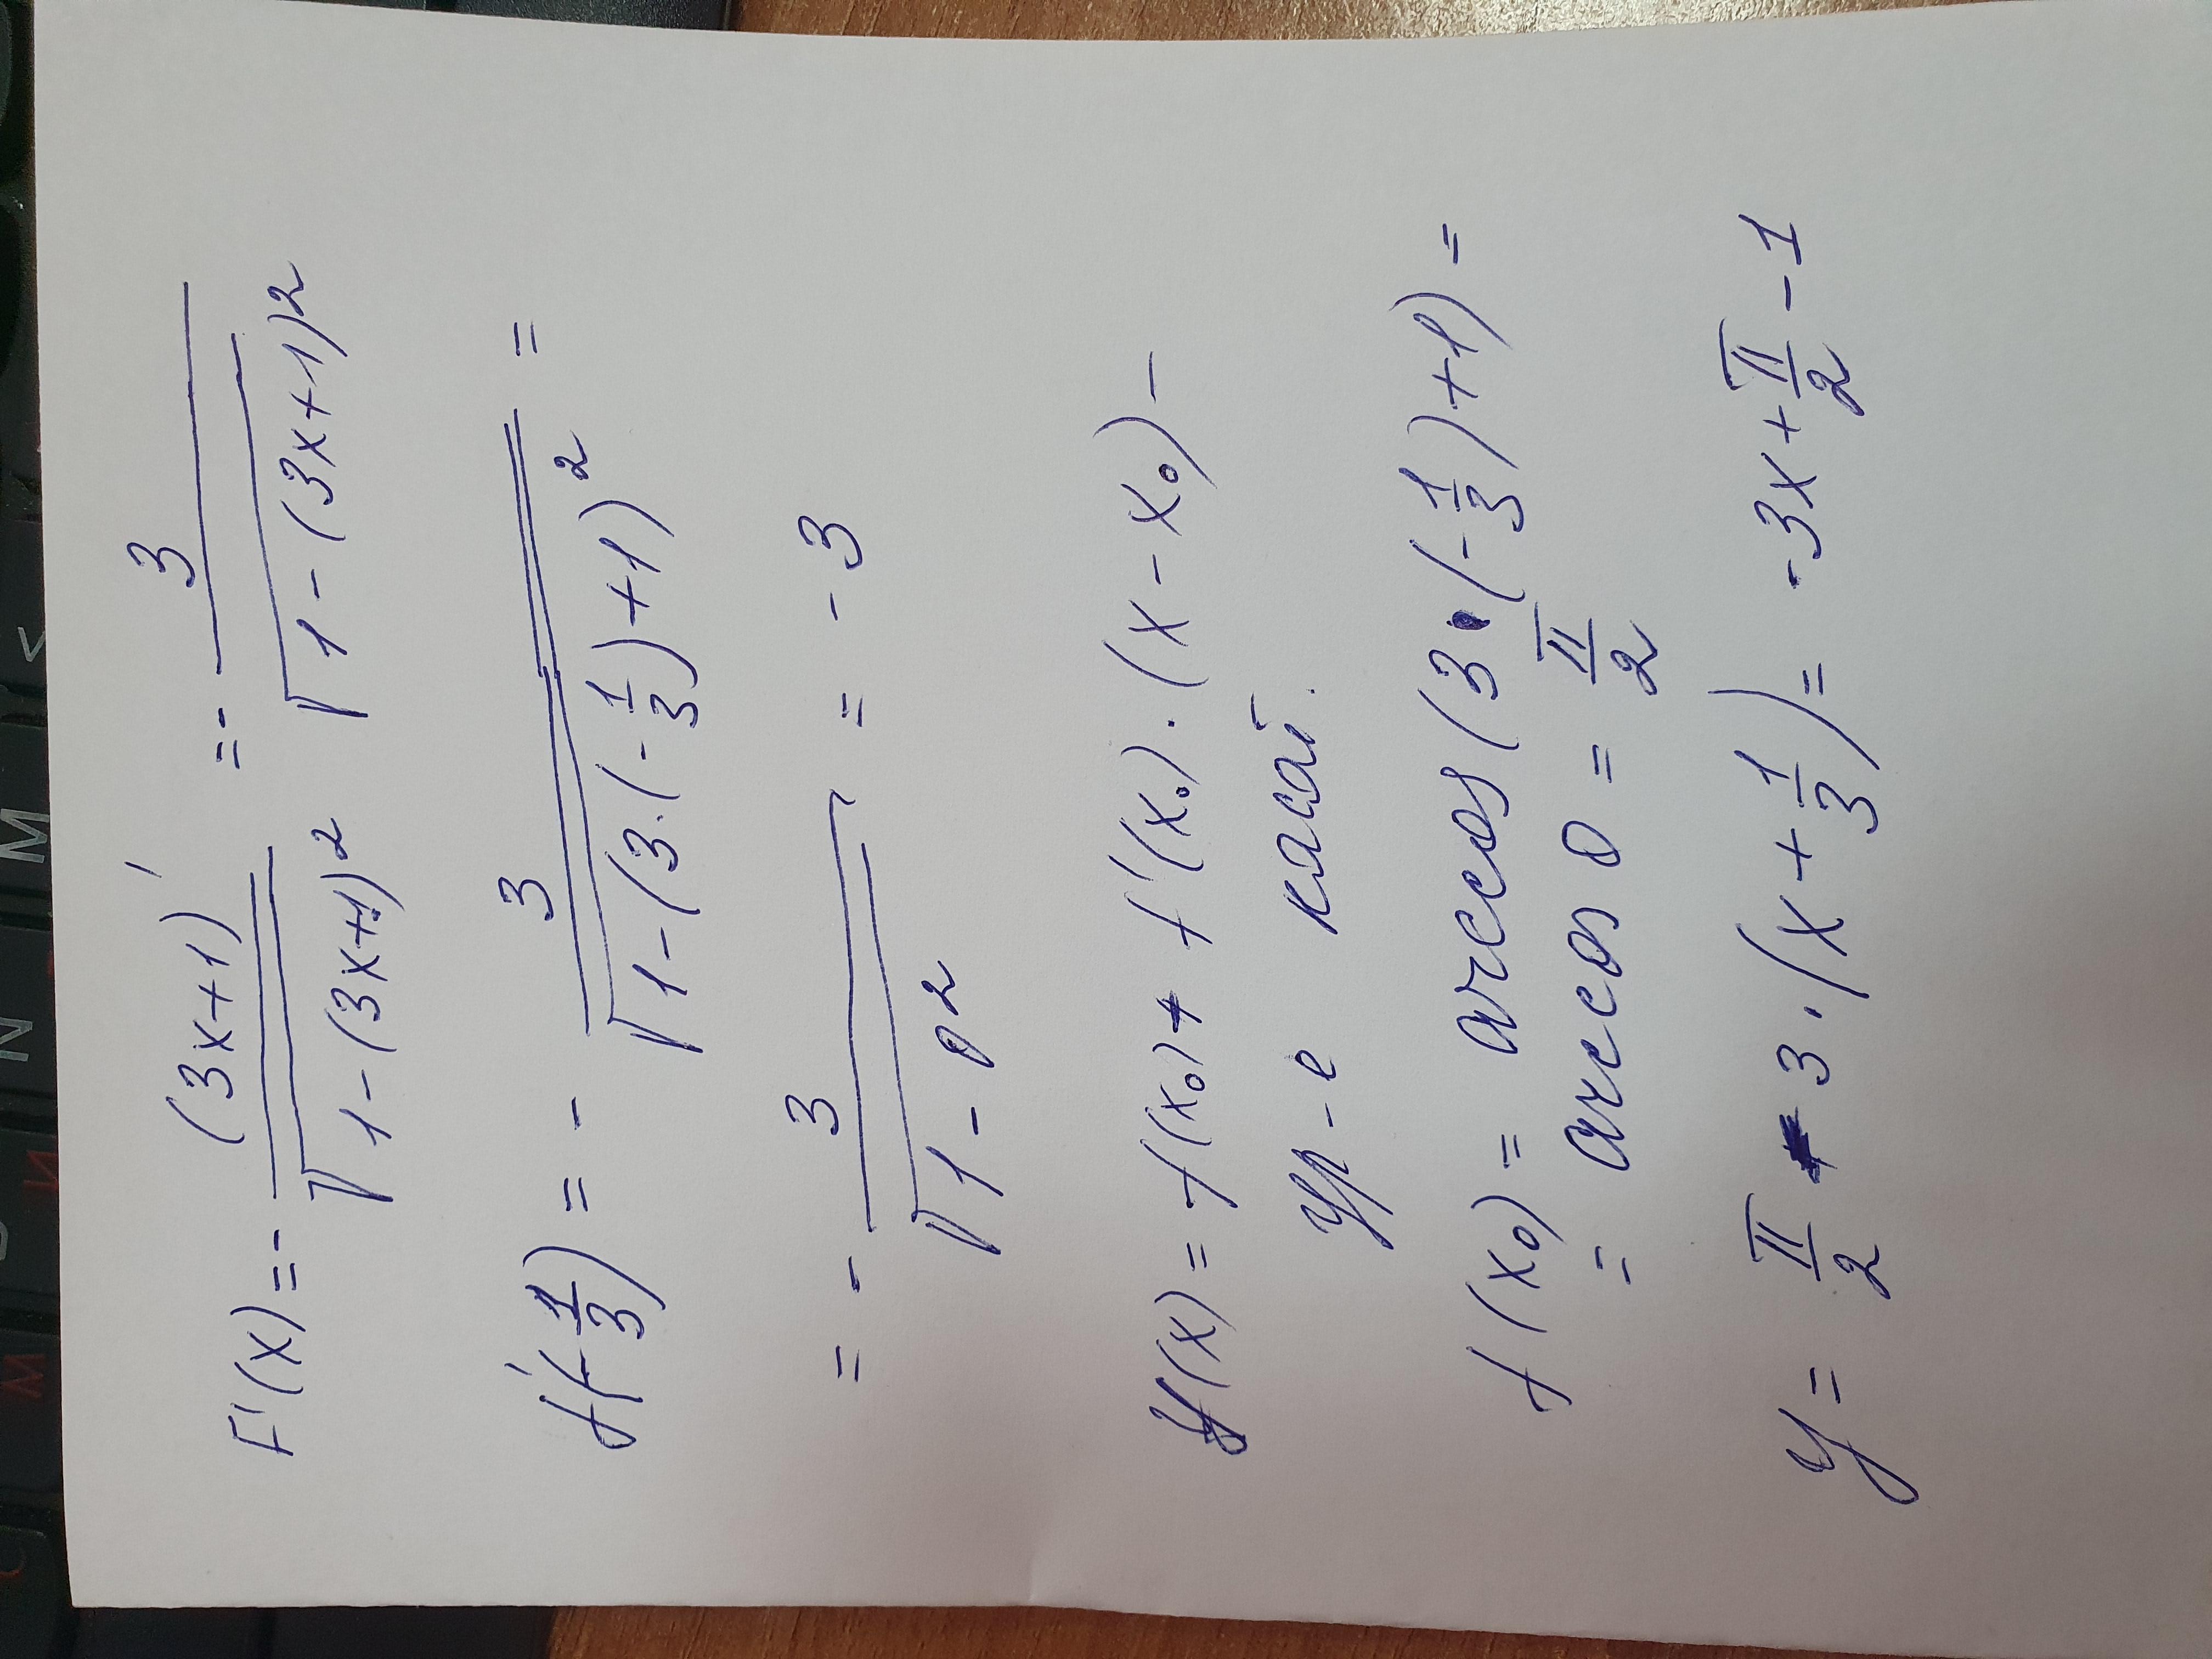 F'(x) = - (3x+1)' / √(1-(3x+1)²) = - 3 / √(1-(3x+1)²)
f'(-1/3) = - 3 / √(1-(3·(-1/3)+1)²) =
= - 3 / √(1-0²) = -3
y(x) = f(x₀) + f'(x₀)·(x-x₀) –
ур-е касат.
f(x₀) = arccos(3·(-1/3)+1) =
= arccos 0 = π/2
y = π/2 - 3·(x+1/3) = -3x + π/2 - 1